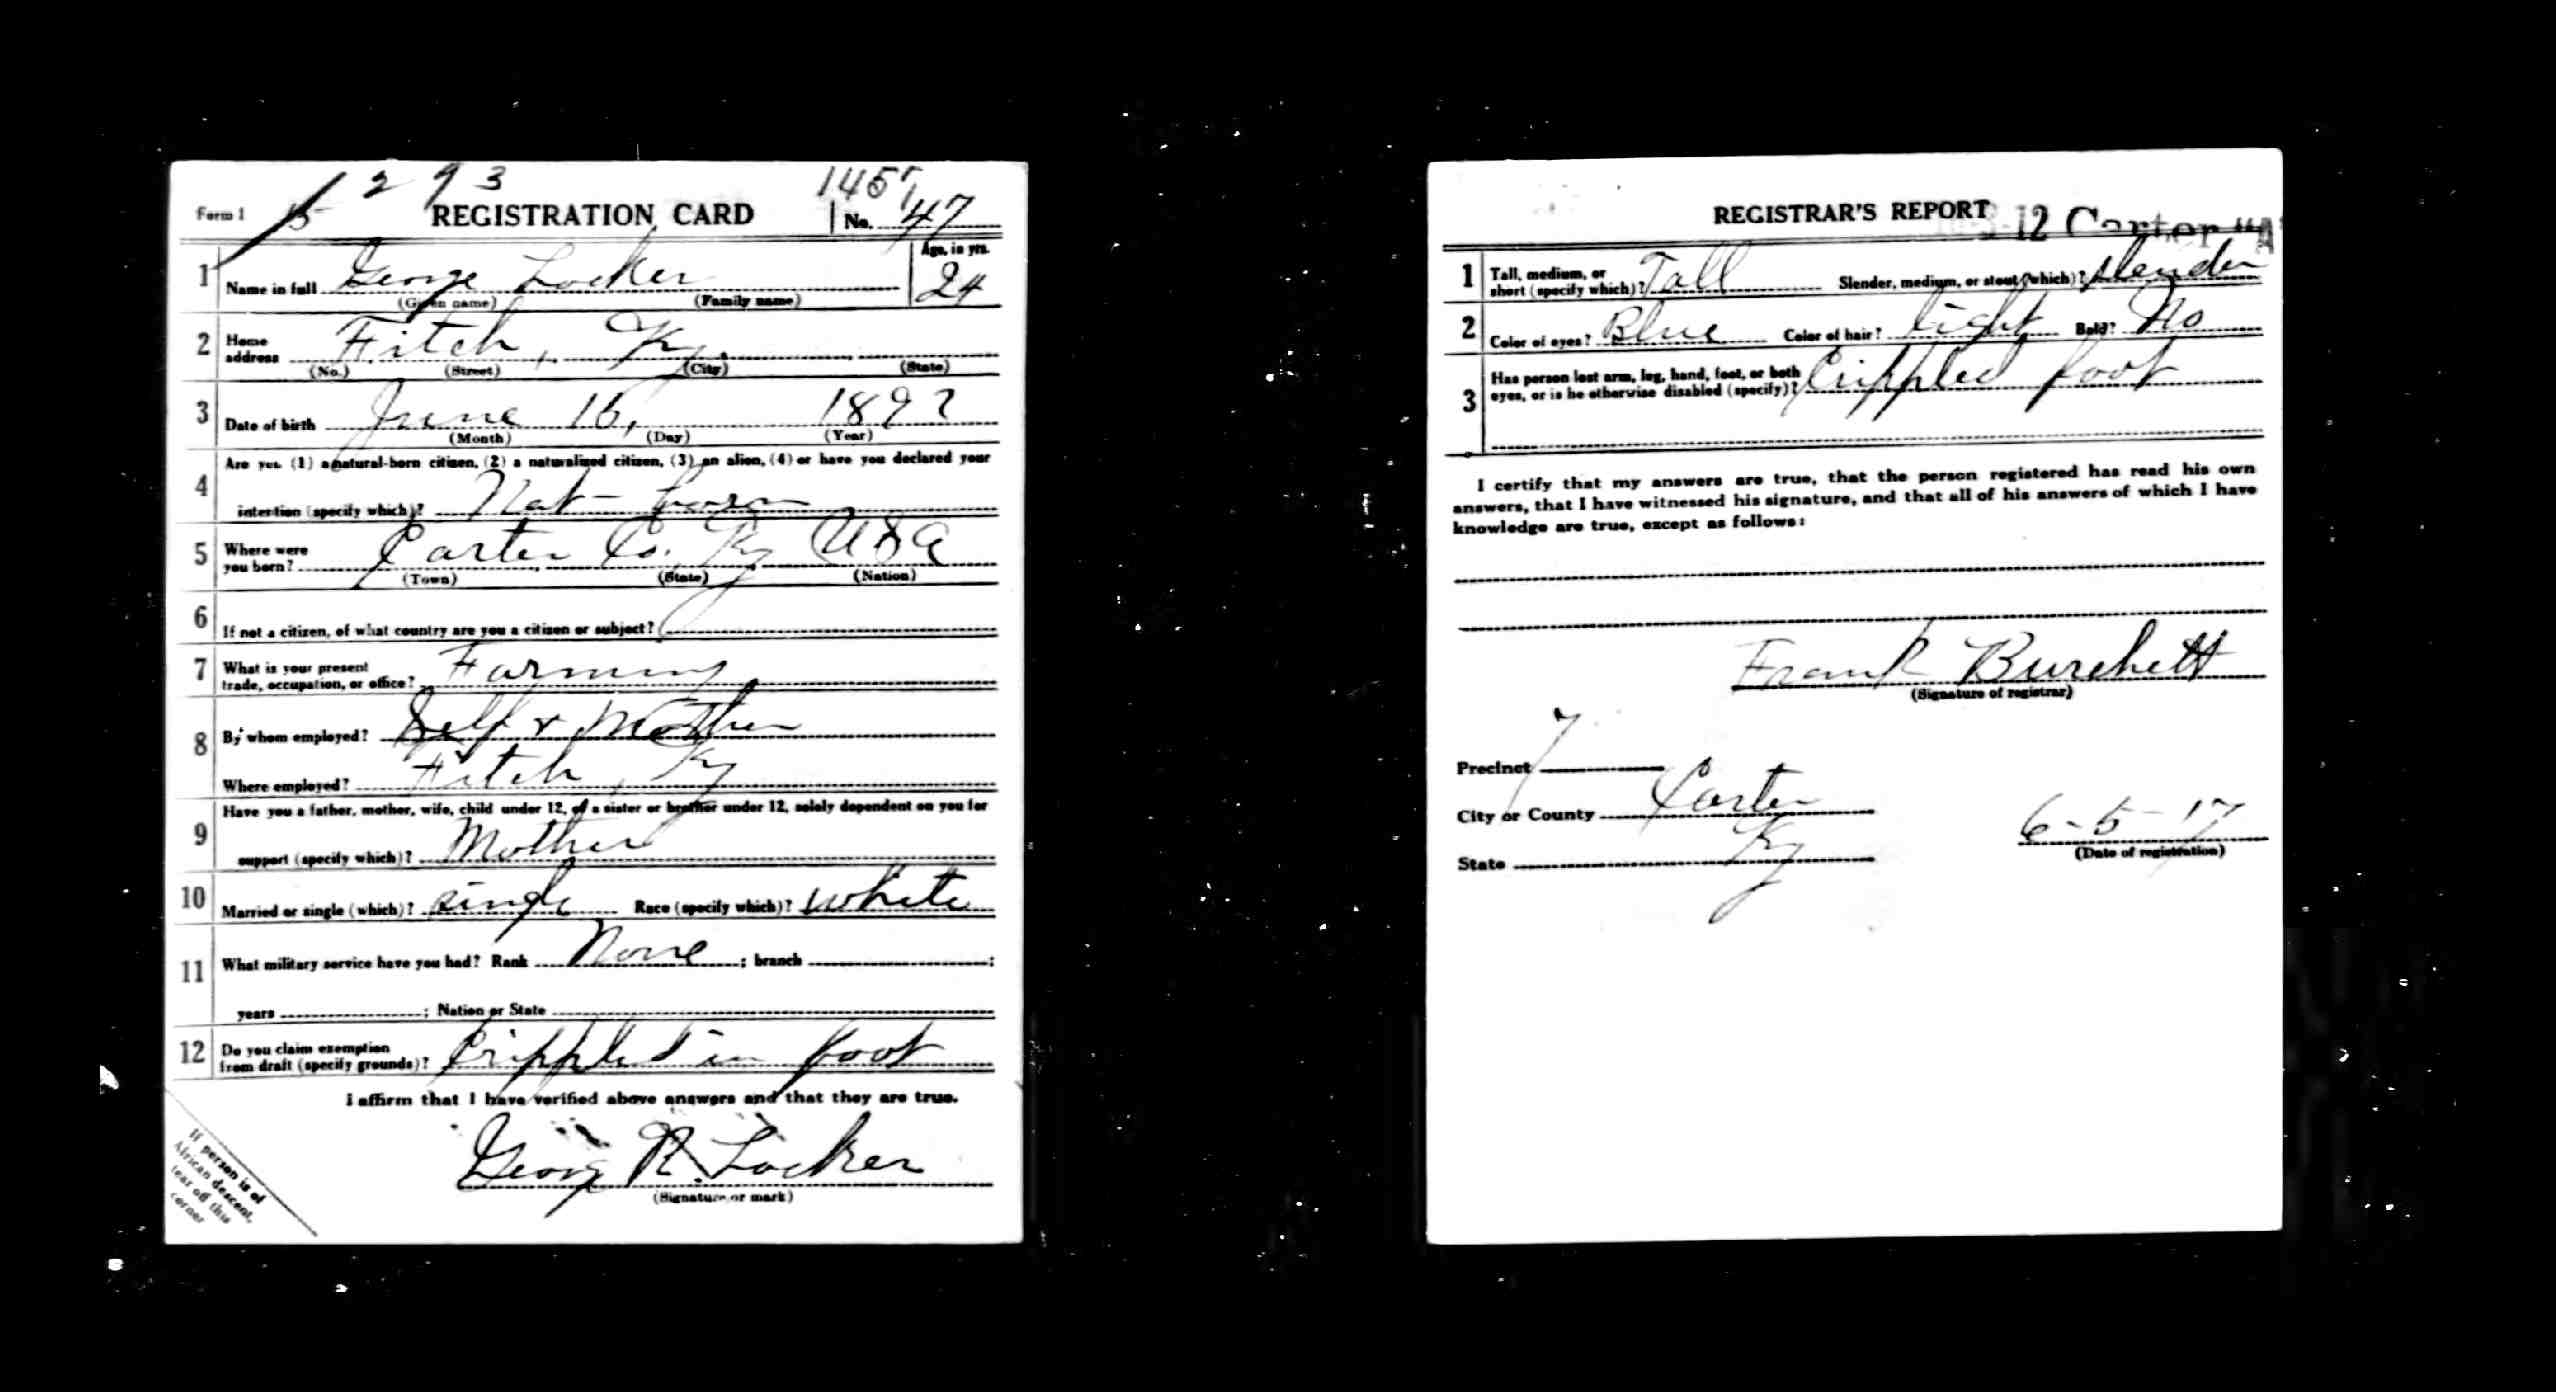 1293
1457
Form 1 15 REGISTRATION CARD No. 47
1 Name in full George Locker Age, in yrs. 24
(Given name) (Family name)
2 Home address Fitch, Ky.
(No.) (Street) (City) (State)
3 Date of birth June 16, 1892
(Month) (Day) (Year)
4 Are you (1) a natural-born citizen, (2) a naturalized citizen, (3) an alien, (4) or have you declared your
intention (specify which)? Nat-born
5 Where were you born? Carter Co. Ky USA
(Town) (State) (Nation)
6 If not a citizen, of what country are you a citizen or subject?
7 What is your present trade, occupation, or office? Farming
8 By whom employed? Self & Mother
Where employed? Fitch, Ky
9 Have you a father, mother, wife, child under 12, or a sister or brother under 12, solely dependent on you for
support (specify which)? Mother
10 Married or single (which)? single Race (specify which)? white
11 What military service have you had? Rank None ; branch ;
years ; Nation or State
12 Do you claim exemption from draft (specify grounds)? Crippled in foot
I affirm that I have verified above answers and that they are true.
George R. Locker
(Signature or mark)
If person is of
African descent,
tear off this
corner
REGISTRAR'S REPORT 12 Carter "A"
1 Tall, medium, or short (specify which)? Tall Slender, medium, or stout (which)? slender
2 Color of eyes? Blue Color of hair? light Bald? No
3 Has person lost arm, leg, hand, foot, or both eyes, or is he otherwise disabled (specify)? Crippled foot
I certify that my answers are true, that the person registered has read his own
answers, that I have witnessed his signature, and that all of his answers of which I have
knowledge are true, except as follows:
Frank Burchett
(Signature of registrar)
Precinct 7
City or County Carter
State Ky
6-5-17
(Date of registration)